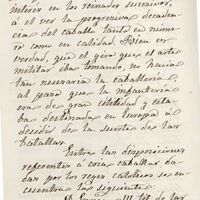 interés en los reinados sucesivos,
á el ver la progresiva decaden-
cia del caballo tanto en nume-
ro como en calidad. Bien es
verdad, que el giro que el arte
militar iba tomando, no hacia
tan necesaria la caballeria,
al paso que la infanteria
era de gran utilidad y esta-
ba destinada en Europa á
decidir de la suerte de las
batallas.
Entre las disposiciones
referentes á cria caballar da-
das por los reyes catolicos se en-
cuentra la siguiente.